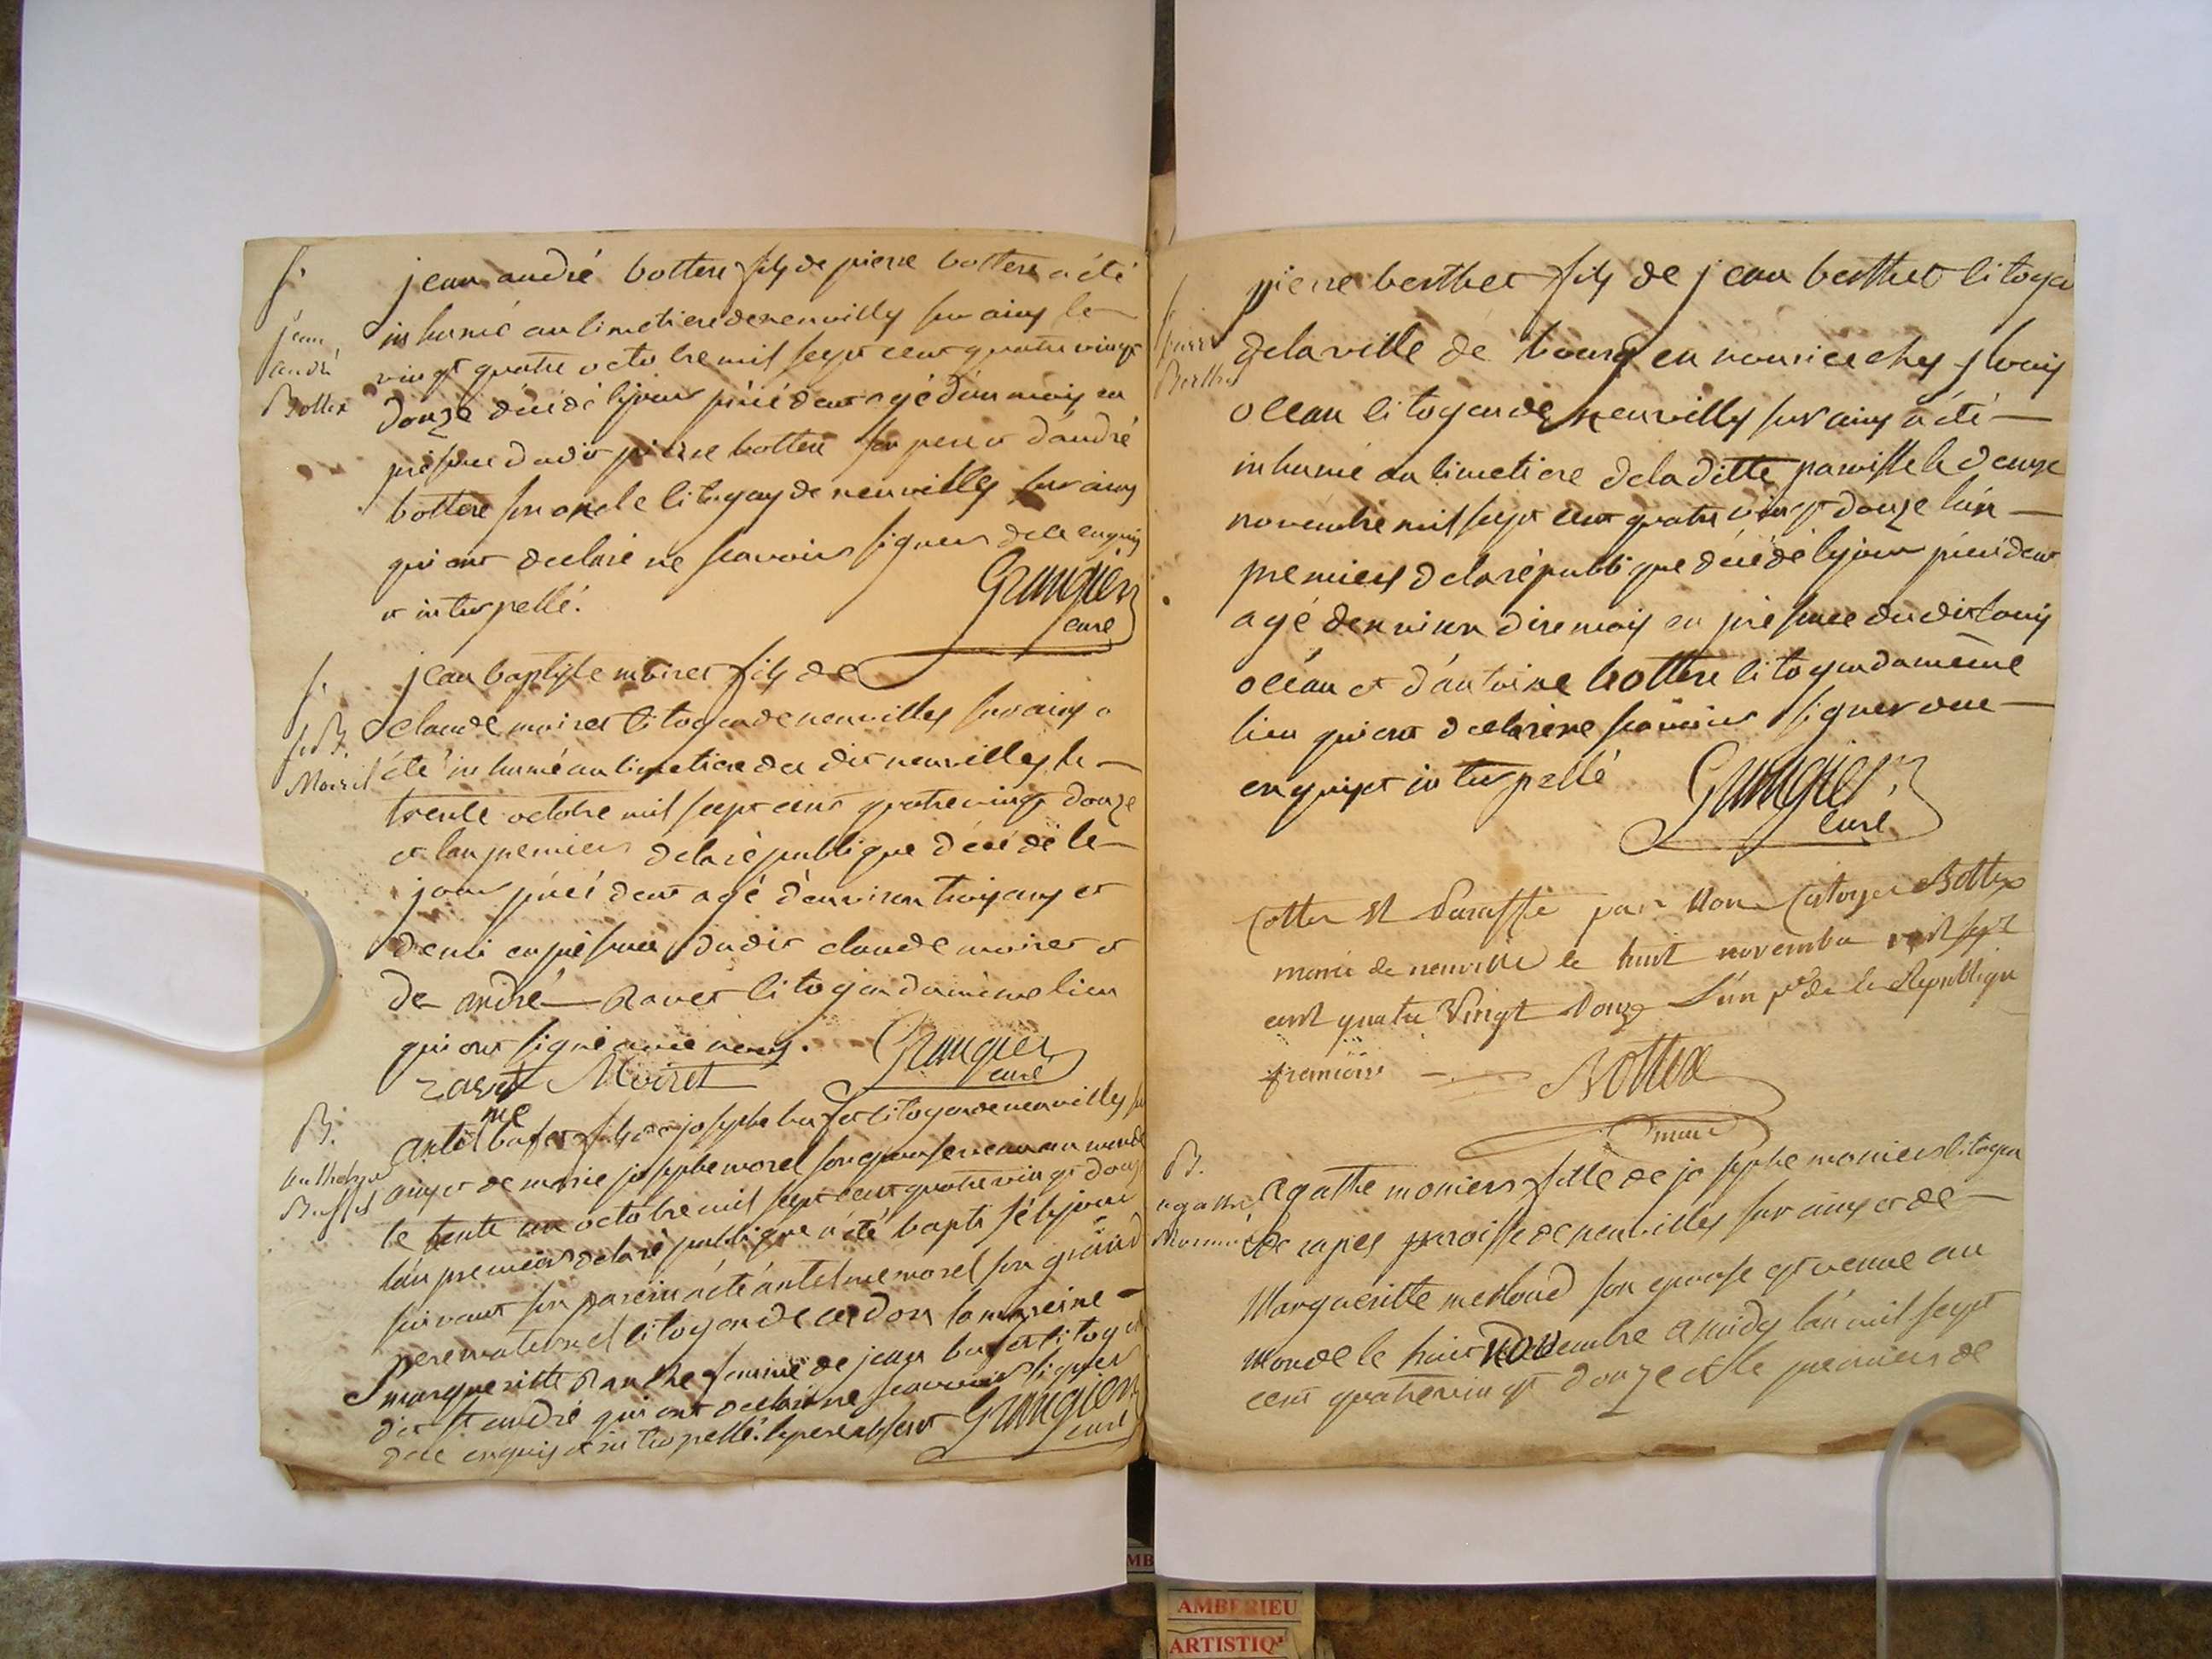 S.
jean
andré
Bottex
jean andré bottere fils de pierre bottere a été
inhumé au simetiere de neuvilly sur ains le
vingt quatre octobre mil sept cent quatre vingt
douze décédé le jour précédent agé d'un mois en
présence dudit pierre bottere son pere et d'andré
bottere son oncle citoyens de neuvilly sur ains
qui ont declaré ne scavoir signer de ce enquis
et interpellé.
Grangier
curé
S.
J. B.
Moiret
jean baptiste moiret fils de
claude moiret citoyen de neuvilly sur ains a
été inhumé au simetiere du dit neuvilly le
trente octobre mil sept cent quatre vingt douze
et l'an premier de la république décédé le
jour précédent agé d'environ trois ans et
demi en présence dudit claude moiret et
de andré ravet citoyen du même lieu
qui ont signé avec nous.
ravet Moiret Grangier
curé
B.
anthelme
Buffet
antelme bufet fils de joseph bufet citoyen de neuvilly sur
ains et de marie josephe morel son epouse venu au monde
le trente un octobre mil sept cent quatre vingt douze
l'an premier de la république a été baptisé le jour
suivant son parein a été antelme morel son grand
pere maternel citoyen de cerdon la mareine
margueritte femme de jean bufet citoyen
dit st andré qui ont declaré ne scavoir signer
de ce enquis et interpellé. le pere absent Grangier
curé
S.
pierre
Berthet
pierre berthet fils de jean berthet citoyen
de la ville de bourg en nourice chez louis
ocean citoyen de neuvilly sur ains a été
inhumé au simetiere de la ditte paroisse le deuxe
novembre mil sept cent quatre vingt douze l'an
premier de la république décédé le jour précédent
agé denviron dixe mois en présence du dit louis
océan et d'antoine bottere citoyen du même
lieu qui ont declaré ne scavoir signer de ce
enquis et interpellé Grangier
curé
Cotter et Paraffé par Nous Citoyen Bottex
maire de neuville le huit novembre mil sept
cent quatre Vingt Douze L'an pr de la Republique
francaise Bottex
maire
B.
agathe
Monnier
agathe moniers fille de josephe moniers citoyen
de rapes paroisse de neuvilly sur ains et de
Margueritte merloud son epouse est venue au
monde le huit novembre a midy l'an mil sept
cent quatre vingt douze et le premier de
AMBERIEU
ARTISTIQ